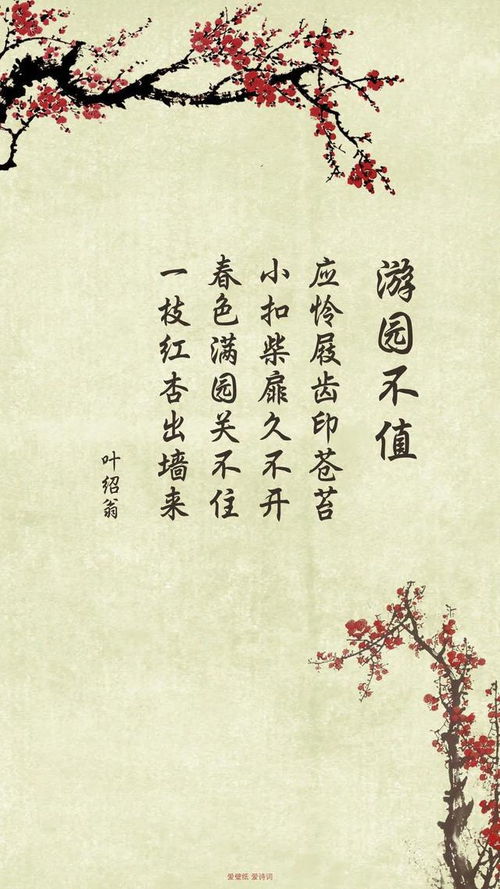 游园不值
应怜屐齿印苍苔
小扣柴扉久不开
春色满园关不住
一枝红杏出墙来
叶绍翁
爱壁纸 爱诗词